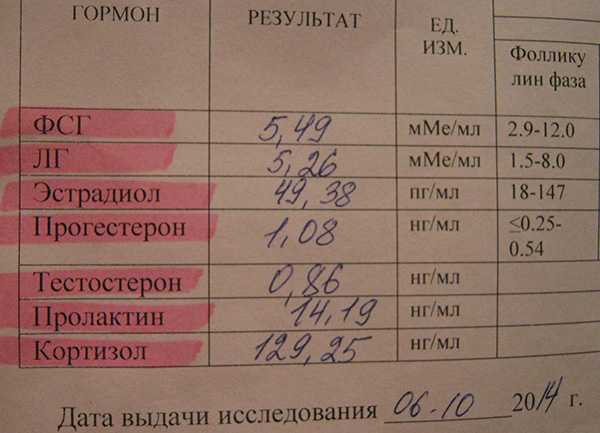 ГОРМОН РЕЗУЛЬТАТ ЕД. ИЗМ. Фоллику лин фаза
ФСГ 5,49 мМе/мл 2.9-12.0
ЛГ 5,26 мМе/мл 1.5-8.0
Эстрадиол 49,38 пг/мл 18-147
Прогестерон 1,08 нг/мл ≤0.25-
0.54
Тестостерон 0,86 нг/мл
Пролактин 14,19 нг/мл
Кортизол 129,25 нг/мл
Дата выдачи исследования 06.10 2014 г.